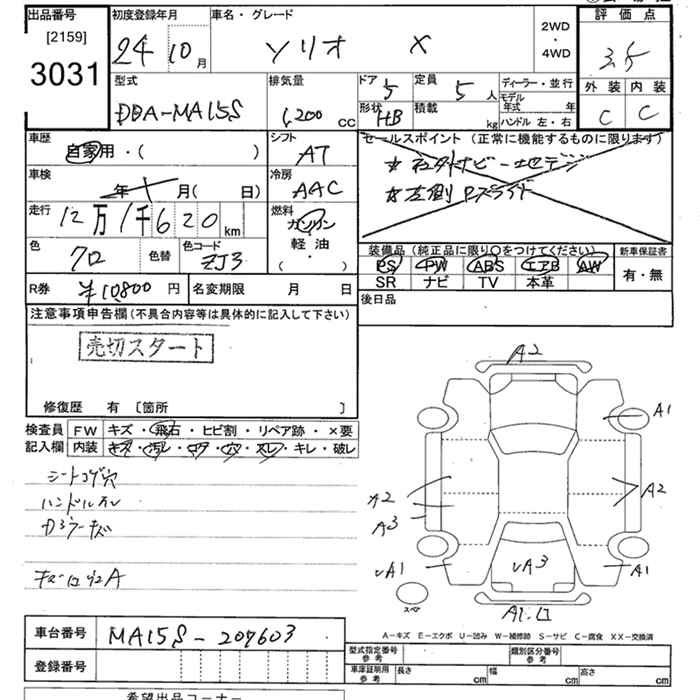 出品番号
[2159]
3031
初度登録年月
24 10 月
車名・グレード
ソリオ X
2WD
・
4WD
評価点
3.5
外装 内装
C C
型式
DBA-MA15S
排気量
1,200 CC
ドア 5
形状 HB
定員 5 人
積載 kg
ディーラー・並行
モデル年式 年
ハンドル 左・右
車歴
自家用・( )
シフト
AT
車検
年 月( 日)
冷房
AAC
走行
12万1千620km
燃料
ガソリン
軽・油
・( )
色
クロ
色替
色コード
ZJ3
R券 ¥10800 円
名変期限 月 日
セールスポイント(正常に機能するものに限ります)
★社外ナビー地デジ
★左側Pスライド
装備品(純正品に限り○をつけてください)
PS PW ABS エアB AW
SR ナビ TV 本革
新車保証書
有・無
後日品
注意事項申告欄(不具合内容等は具体的に記入して下さい)
売切スタート
修復歴 有 〔箇所 〕
検査員記入欄
FW キズ・飛石・ヒビ割・リペア跡・×要
内装 キズ・汚レ・コゲ・穴・スレ・キレ・破レ
シートコゲ穴
ハンドルスレ
A2
A1
A2
A2
A3
A1
A3
A1
スペア
A-キズ E-エクボ U-凹み W-補修跡 S-サビ C-腐食 XX-交換済
車台番号 MA15S-207603
登録番号
型式指定番号 参考
類別区分番号 参考
車庫証明用 参考 長さ cm 幅 cm 高さ cm
希望出品コーナー